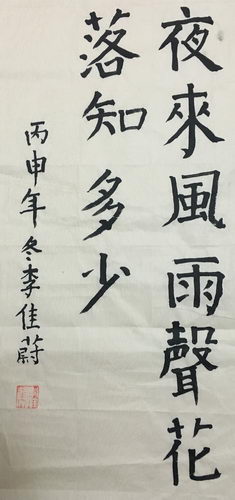 夜來風雨聲花
落知多少
丙申年冬李佳蔚